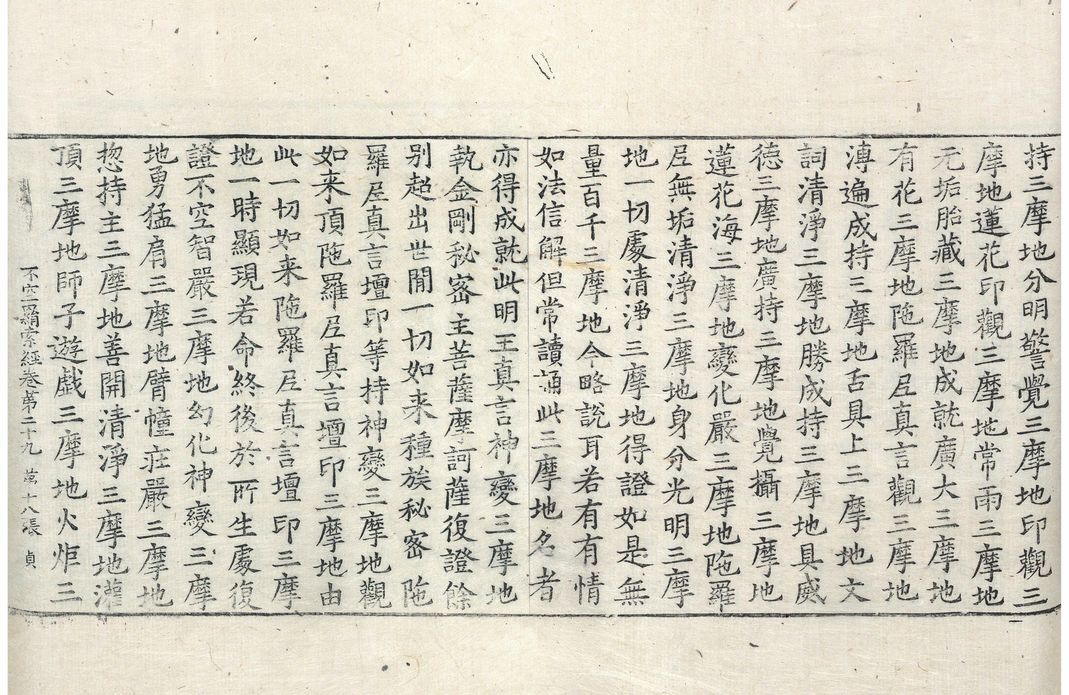 持三摩地分明警覺三摩地印觀三
摩地蓮花印觀三摩地常雨三摩地
无垢胎藏三摩地成就廣大三摩地
有花三摩地陁羅尼真言觀三摩地
溥遍成持三摩地舌具上三摩地文
詞清淨三摩地勝成持三摩地具威
德三摩地廣持三摩地覺攝三摩地
蓮花海三摩地變化嚴三摩地陁羅
尼無垢清淨三摩地身分光明三摩
地一切處清淨三摩地得證如是無
量百千三摩地今略說耳若有有情
如法信解但常讀誦此三摩地名者
亦得成就此明王真言神變三摩地
執金剛秘密主菩薩摩訶薩復證餘
別超出世間一切如来種族秘密陁
羅尼真言壇印等持神變三摩地觀
如来頂陁羅尼真言壇印三摩地由
此一切如来陁羅尼真言壇印三摩
地一時顯現若命終後於所生處復
證不空智嚴三摩地幻化神變三摩
地勇猛肩三摩地臂幢莊嚴三摩地
惣持主三摩地善開清淨三摩地灌
頂三摩地師子遊戲三摩地火炬三
不空羂索經卷第二十九 第十八張 貞